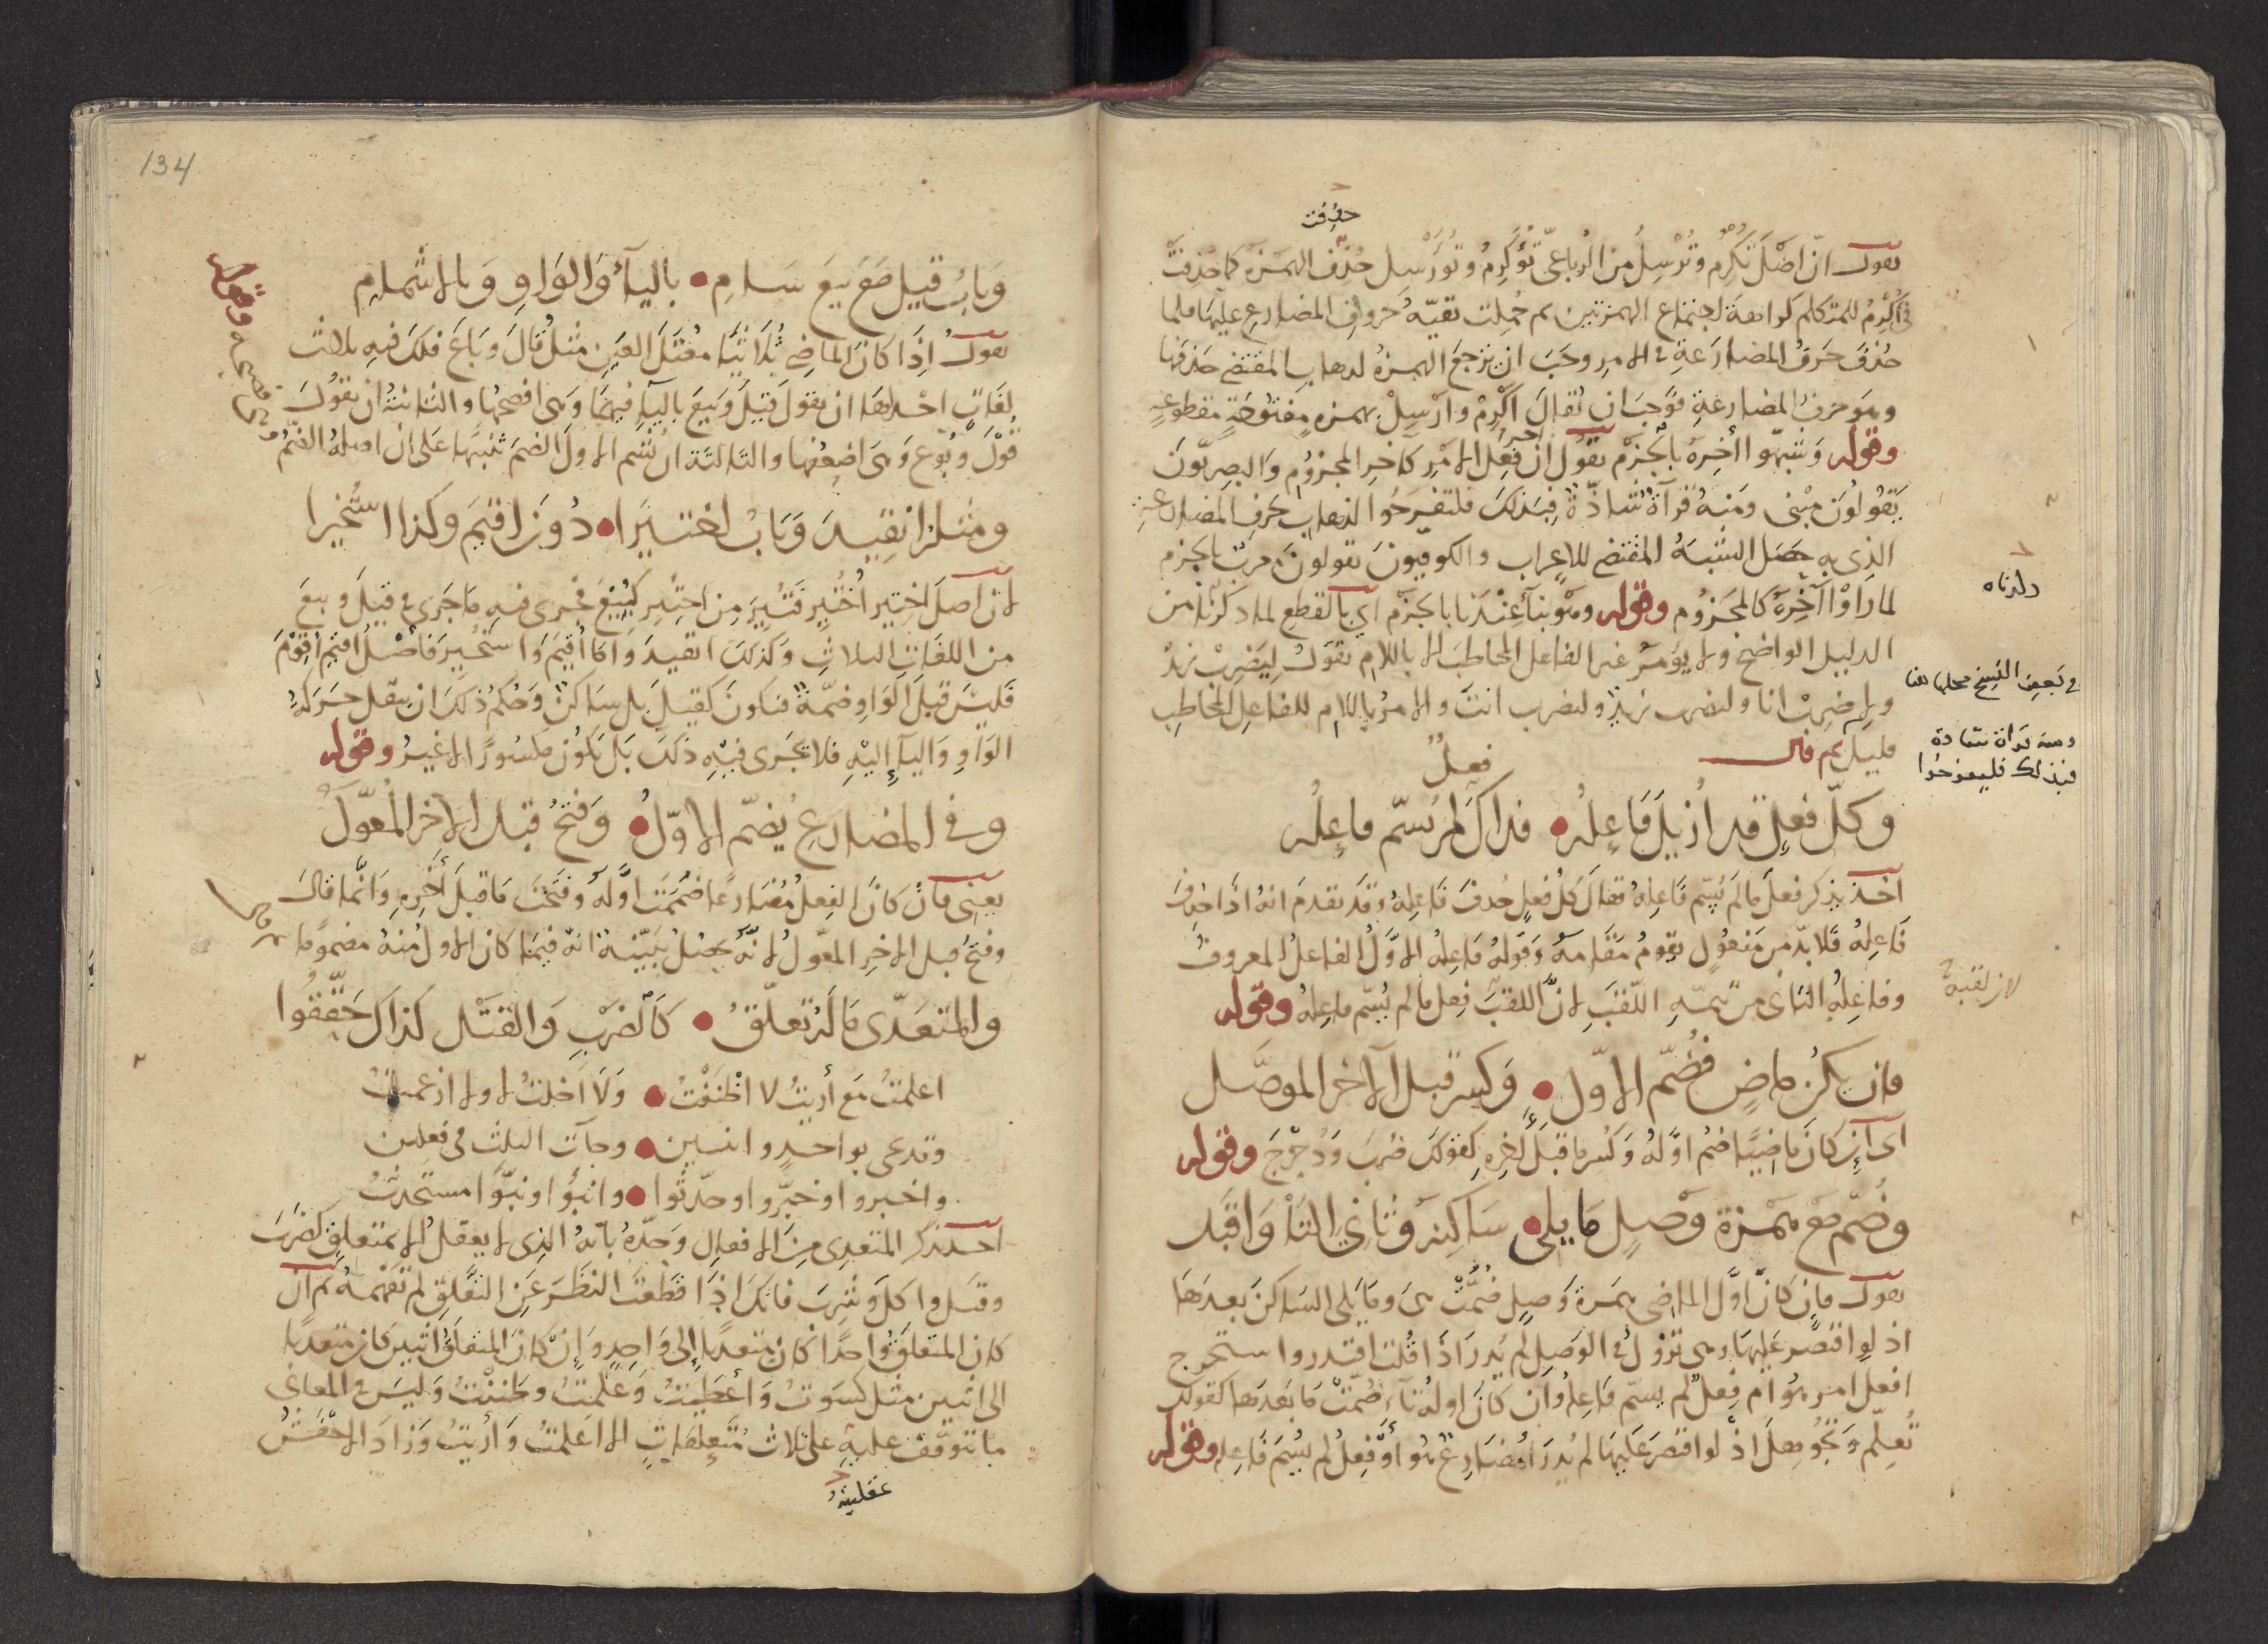 حذفت
نقول ان اصل تكرم وترسل من الرباعي تؤكرم وتؤرسل حذف الهمزة كما حذفت
في اكرم للمتكلم كراهة لاجتماع الهمزتين ثم حملت بقية حروف المضارع عليها فلما
حذف حرف المضارعة في الامر وجب ان ترجع الهمزة لذهاب المقتضي حذفها
وهو حرف المضارعة فوجب ان يقال اكرم وارسل بهمزه مفتوحة مقطوعة
وقوله وشبهوا اخره بالجزم نقول ان اخر فعل الامر كاخر المجزوم والبصريون
يقولون مبنى ومنه قرآة شاذة فبذلك فلتفرحوا لذهاب حرف المضارعة
الذى به حصل الشبه المقتضي للاعراب والكوفيون يقولون معرب بالجزم
لما راوا آخره كالمجزوم وقوله وهو بناء عندنا بالجزم اي بالقطع لما ذكرنا من
الدليل الواضح ولا يؤمر غير الفاعل المخاطب الا باللام نقول ليضرب زيد
ولاضرب انا ولتضرب زيد ولتضرب انت والامر باللام للفاعل المخاطب
قليل ثم قال
فعل
وكل فعل قد ازيل فاعله فذاك لم يسم فاعله
اخذ يذكر فعل ما لم يسم فاعله فقال كل فعل حذف فاعله وقد تقدم انه اذا حذف
فاعله فلا بد من مفعول يقوم مقامه وقوله فاعله الاول الفاعل المعروف
وفاعله الثاني من تتمة اللقب لان اللقب فعل ما لم يسم فاعله وقوله
فان يكن ماض فضم الاول وكسر قبل الآخر الموصل
اى ان كان ماضيا ضم اوله وكسر ما قبل اخره كقولك ضرب ودحرج وقوله
وضم مع همزة وصل ما يلي ساكنه وثاني التا واقبل
نقول فان كان اول الماضى همزة وصل ضمت هى وما يلى الساكن بعدها
اذ لو اقتصر عليها وهى تزول في الوصل لم يدر اذا قلت اقتدر واستخرج
افعل امر هو ام فعل لم يسم فاعله وان كان اوله تاء ضمت ما بعدها كقولك
تعلم وتجوهل اذ لو اقتصر عليها لم يدر امضارع هو او فعل لم يسم فاعله وقوله
دلدناه
في بعض النسخ محلها هنا
ومنه قراة شاذة
فبذلك فليفرحوا
لانه لقبه
134
وباب قيل مع بيع سام باليآ والواو وبالاشمام
نقول اذا كان الماضي ثلاثيا معتل العين مثل قال وباع فلك فيه ثلاث
لغات احداها ان تقول قيل وبيع باليآ فيهما وهى افصحها والثانية ان تقول
قول وبوع وهى اضعفها والثالثة ان تشم الاول الضم تنبيها على ان اصله الضم
ومثل انقيد وباب اختيرا دون اقيم وكذا استخيرا
لان اصل اختير اختير فتير من اختير كبيع فجرى فيه ما جرى في قيل وبيع
من اللغات الثلاث وكذلك انقيد واما اقيم واستخير فاصل اقيم اقوم
فليس قبل الواو ضمة فتكون كقيل بل ساكن وحكم ذلك ان ينقل حركة
الواو واليآ إليه فلا تجرى فيه ذلك بل يكون مكسورا لا غير وقوله
وفي المضارع يضم الاول وفتح قبل الاخر المعول
يعنى فان كان الفعل مضارعا ضممت اوله وفتحت ما قبل اخره وانما قال
وفتح قبل الاخر المعول لانه يحصل بينه انه فيما كان الاول منه مضموما
والمتعدى ما له تعلق كالضرب والقتل كذاك حققوا
اعلمت مع أريت لا اظننت ولا اخلت لا ولا ازعمت
وقد عدى بواحد واثنين وجآت الثلث في فعلين
واخبروا وخبروا وحدثوا وانبؤا ونبؤا مستحدث
اخذ يذكر المتعدى من الافعال وحده بانه الذى لا يعقل الا بمتعلق كضرب
وقتل واكل وشرب فانك اذا قطعت النظر عن التعلق لم تفهمه ثم ان
كان المتعلق واحدا كان متعديا إلى واحد وإن كان المتعلق اثنين كان متعديا
الى اثنين مثل كسوت وأعطيت وعلمت وظننت وليس في المعاني
ما تتوقف عليه على ثلاث متعلقات الا اعلمت وأريت وزاد الاخفش
عقليته